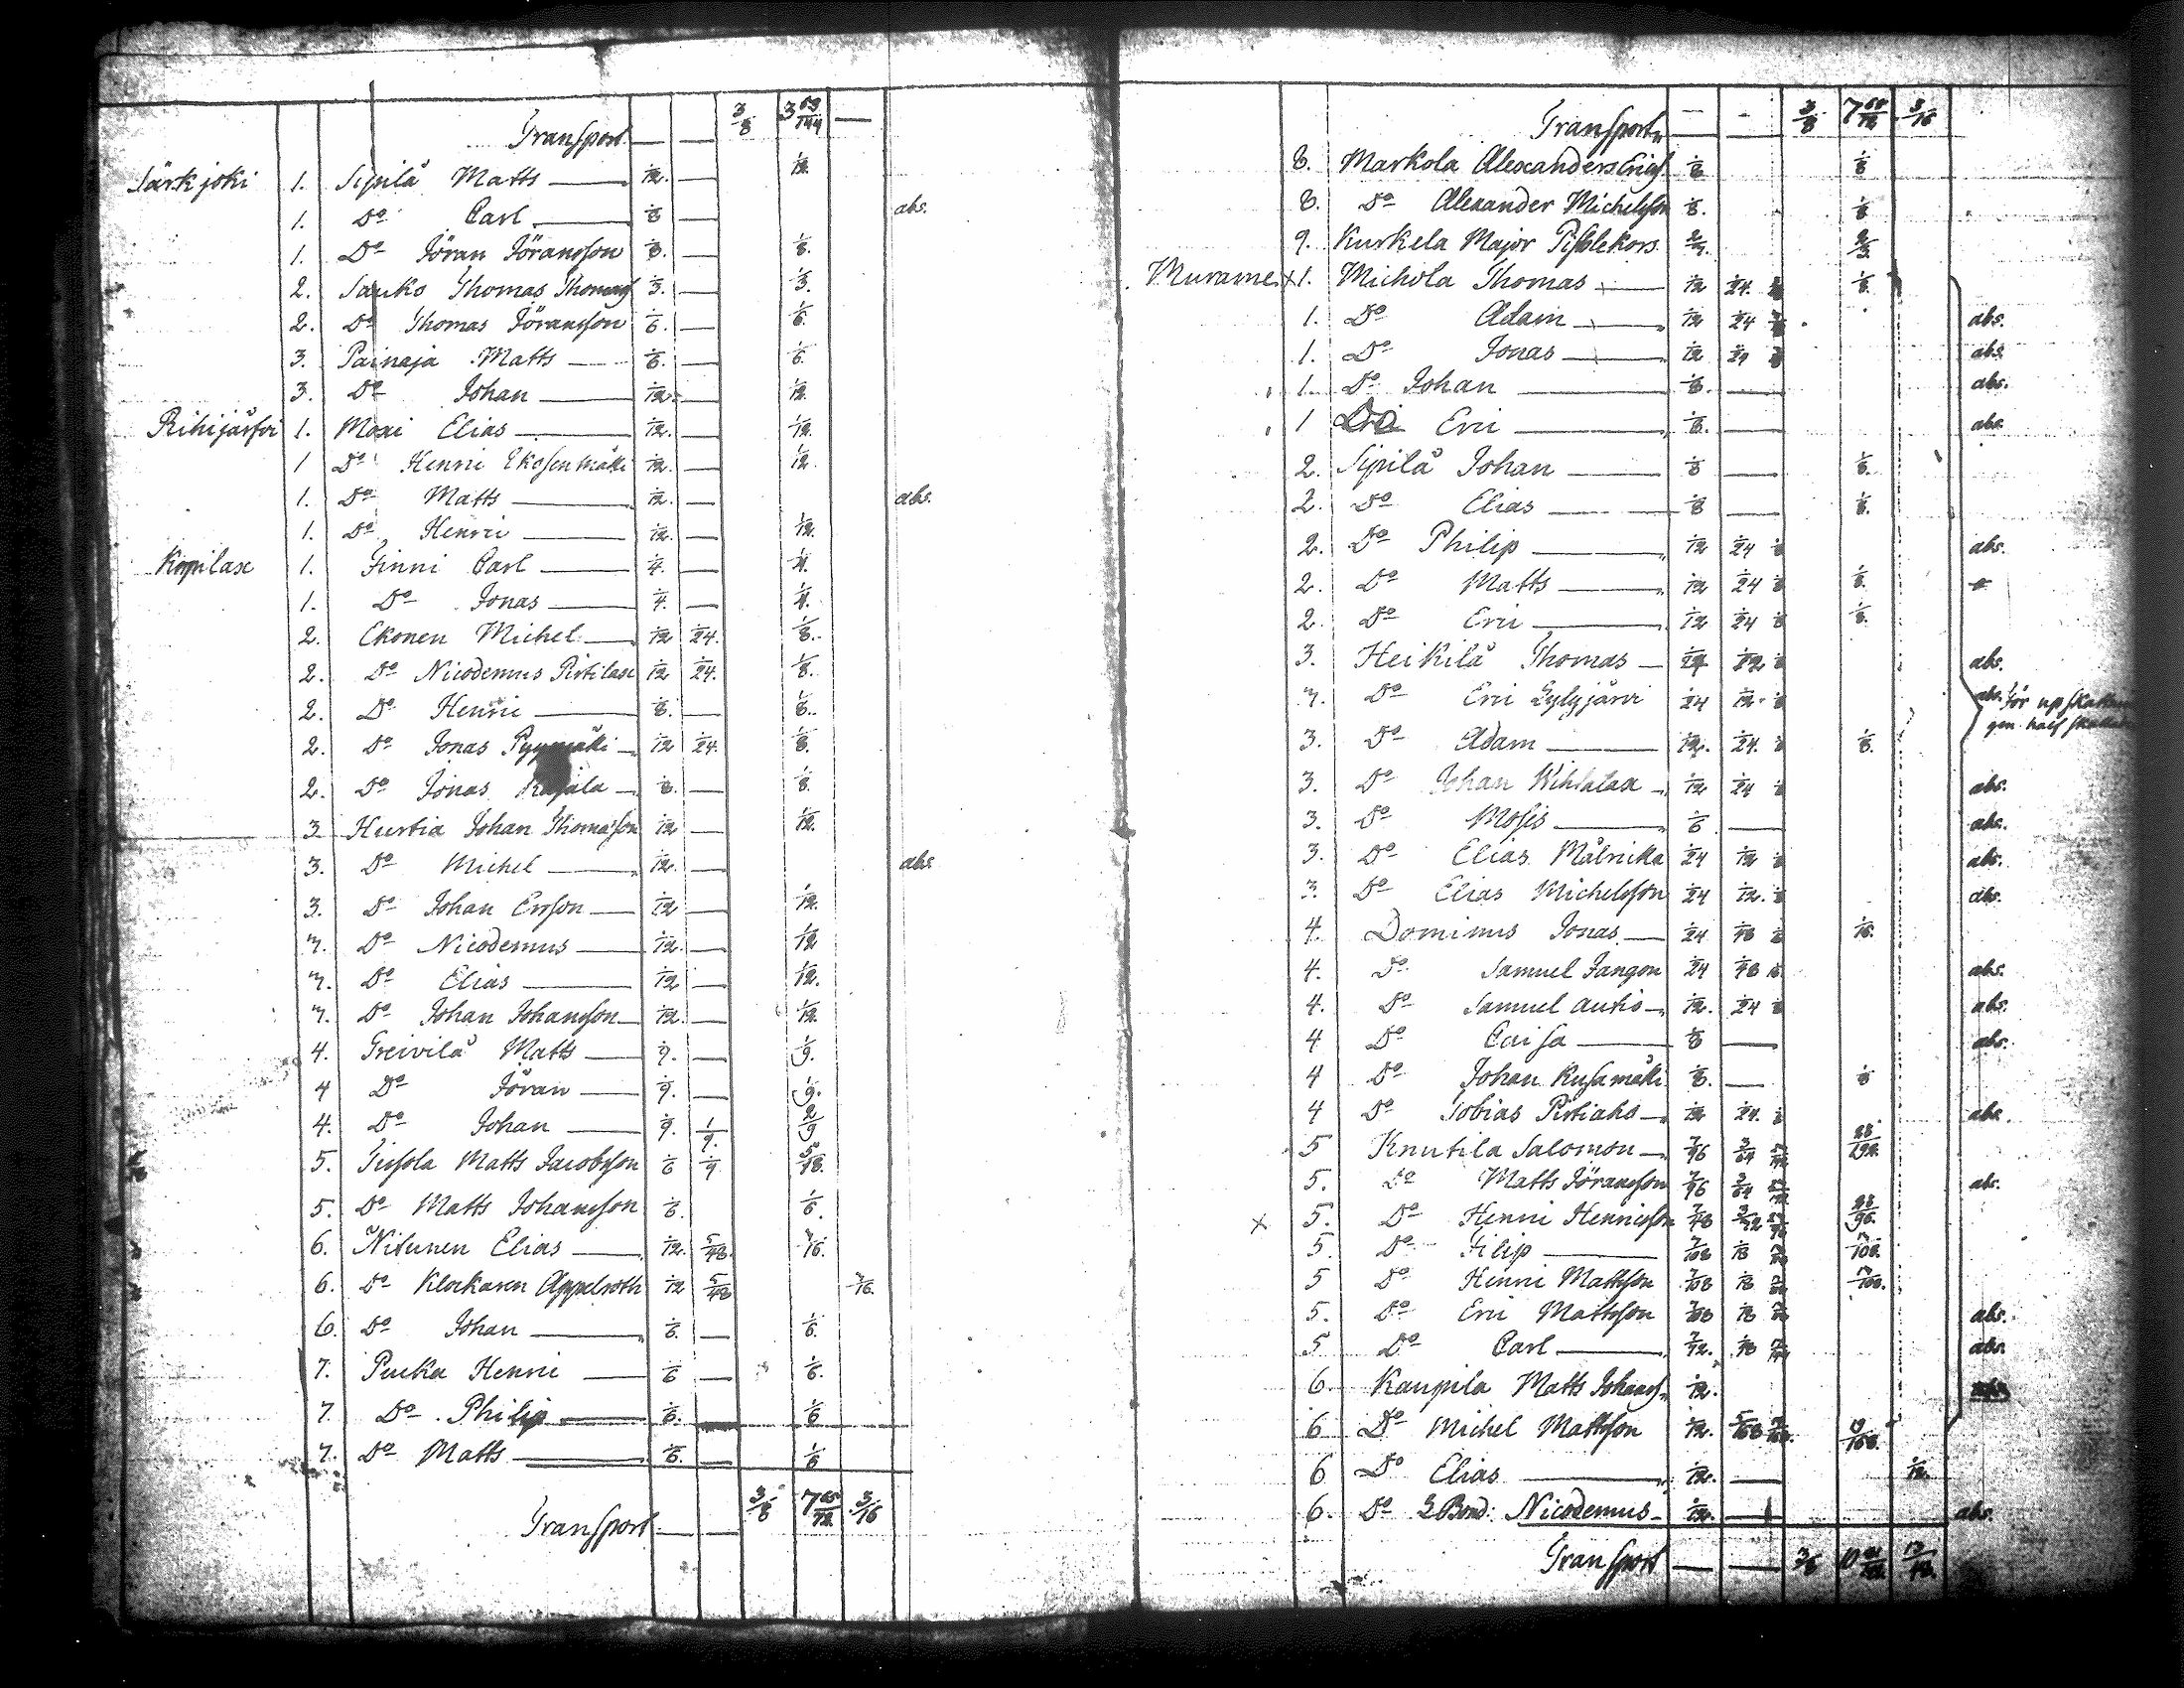 Transport — — 3/8 3 69/144 —
Särkjoki 1. Sipilä Matts — 1/12. — 1/12.
1. Do Carl — 1/8 — abs.
1. Do Jöran Jöransson 1/8. — 1/8.
2. Sauko Thomas Thomass 1/3. — 1/3.
2. Do Thomas Jöransson 1/6. — 1/6.
3. Painaja Matts — 1/6. — 1/6.
3. Do Johan — 1/12. — 1/12.
Rihijärfvi 1. Moxi Elias — 1/12. — 1/12.
1 Do Henric Ekosenmäki 1/12. — 1/12.
1. Do Matts — 1/12. — abs.
1. Do Henric — 1/12. — 1/12.
Kopilax 1. Finni Carl — 1/4. — 1/4.
1. Do Jonas — 1/4. — 1/4.
2. Ekonen Michel — 1/12 1/24. 1/8.
2. Do Nicodemus Pistilax 1/12 1/24. 1/8.
2. Do Henric — 1/8. — 1/8.
2. Do Jonas 1/12 1/24. 1/8.
2. Do Jonas — 1/8. — 1/8.
3 Hustia Johan Thomasson 1/12 — 1/12.
3. Do Michel — 1/12. — abs
3. Do Johan Ersson — 1/12 — 1/12.
3. Do Nicodemus — 1/12. — 1/12
3. Do Elias — 1/12 — 1/12.
3. Do Johan Johansson — 1/12. — 1/12.
4. Greivilä Matts — 1/9. — 1/9.
4 Do Jöran — 1/9. — 1/9.
4. Do Johan — 1/9. 1/9. 2/9
5. Matts Jacobsson 1/6 1/9 5/18.
5. Do Matts Johansson 1/6. 1/6.
6. Nitunen Elias — 1/12. 5/48. 3/16.
6. Do Klockaren Appelroth 1/12 5/48 3/16.
6. Do Johan — 1/6. — 1/6.
7. Pucka Henric — 1/6 — 1/6.
7. Do Philip — 1/6. — 1/6
7. Do Matts — 1/6. — 1/6
Transport — — 3/8 7 65/72. 3/16
Transport — — 3/8 7 65/72 3/16
8. Markola Alexanders Erics 1/8 1/8
8. Do Alexander Michelsson 1/8. 1/8
9. Kurkela Major Pistolekors 2/3. 2/3.
Murame x 1. Michola Thomas — 1/12 1/24. 1/8 1/8.
1. Do Adam — 1/12 1/24 abs.
1. Do Jonas — 1/12 1/24 abs.
1. Do Johan — 1/8. — abs.
1 Do Eric — 1/8. — abs.
2. Sipilä Johan — 1/8 — 1/8.
2. Do Elias — 1/8 — 1/8.
2. Do Philip — 1/12 1/24 1/8 abs.
2. Do Matts — 1/12 1/24 1/8 1/8.
2. Do Eric — 1/12 1/24 1/8 1/8.
3. Heikilä Thomas — 1/24 1/12 1/8 abs.
3. Do Eric Lylyjärvi 1/24 1/12. 1/8 abs. för upskattnin
gen half skatten
3. Do Adam — 1/12. 1/24. 1/8 1/8.
3. Do Johan Kihlalax — 1/12 1/24 1/8 abs.
3. Do Moses — 1/6 — abs.
3. Do Elias Målnicka 1/24 1/12 1/8 abs.
3. Do Elias Michelsson 1/24 1/12. 1/8 abs.
4. Dominus Jonas — 1/24 1/48 1/16 1/16.
4. Do Samuel Jangon 1/24 1/48 1/16. abs.
4. Do Samuel Autio — 1/12. 1/24 1/8 abs.
4 Do Caisa — 1/8 — abs.
4 Do Johan Kusamäki 1/8. — 1/8
4 Do Tobias Pistiaho — 1/12 1/24. 1/8 abs.
5 Knutila Salomon — 7/96 3/64 23/192.
5. Do Matts Jöransson 7/96 3/64 abs.
x 5. Do Henric Henricsson 7/48 3/32 23/96.
5. Do Filip — 7/108 1/18 13/108.
5 Do Henric Mattsson 7/108 1/18 13/108.
5. Do Eric Mattsson 7/108 1/18 abs.
5 Do Carl — 7/72. 1/18 abs.
6 Kaupila Matts Johanss 1/12.
6 Do Michel Mattsson 1/12. 5/168
6 Do Elias — 1/12. — 1/12.
6. Do Nicodemus — 1/12. — abs.
Transport — — 3/8 10 13/48.